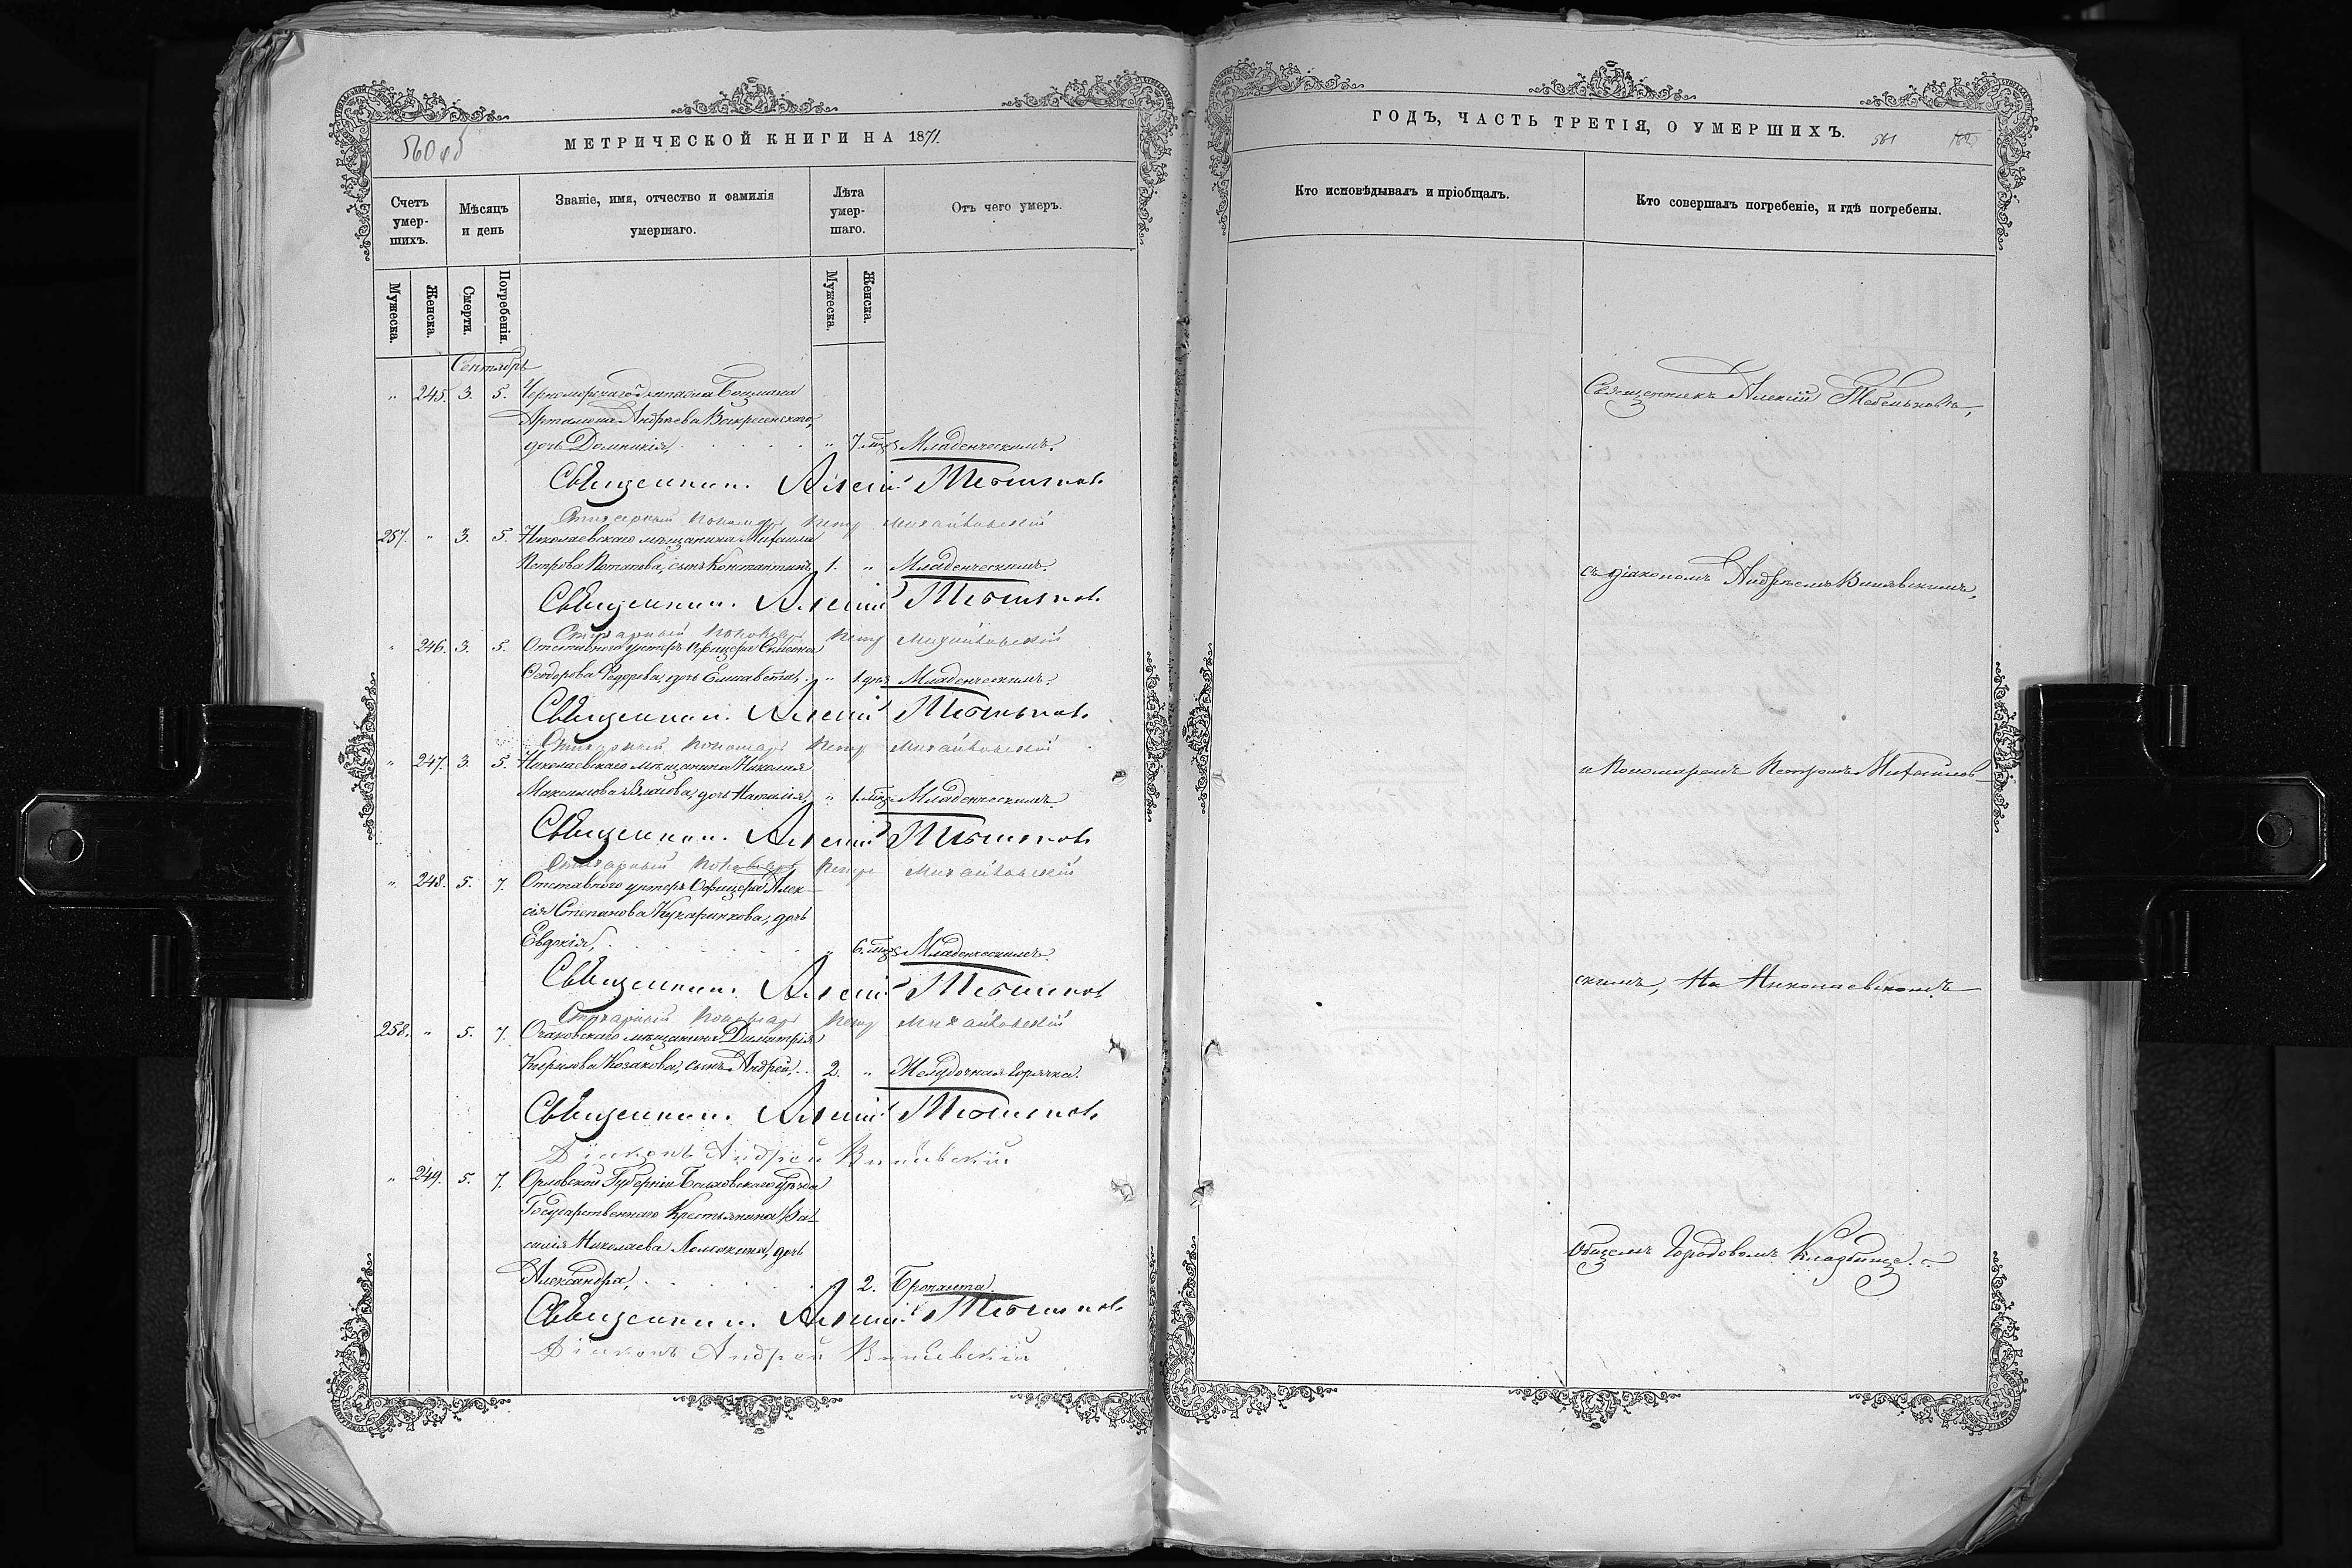 560 об
МЕТРИЧЕСКОЙ КНИГИ НА 1871.
Счетъ умер-шихъ.
Мѣсяцъ и день
Званіе, имя, отчество и фамилія умершаго.
Лѣта умер-шаго.
Отъ чего умеръ.
Мужеска.
Женска.
Смерти.
Погребенія.
Мужеска.
Женска.
Сентябрь
" 245. 3. 5. Черноморскаго Боцмана
Артамона Андреева Воскресенскаго,
дочь Домникія, " 7. мцъ Младенческимъ.
Священникъ Алексій
Стихарный Пономарь Петръ Михайловскій
257. " 3. 5. Николаевскаго мѣщанина Михаила
Петрова Потапова, сынъ Константинъ, 1. " Младенческимъ.
Священникъ Алексій
Стихарный Пономарь Петръ Михайловскій
" 246. 3. 5. Отставного унтеръ Офицера Симеона
Феодорова Федорова, дочь Елисавета, " 1. дня Младенческимъ.
Священникъ Алексій
Стихарный Пономарь Петръ Михайловскій
" 247. 3. 5. Николаевскаго мѣщанина Николая
Максимова Власова, дочь Наталія, " 1. мцъ Младенческимъ.
Священникъ Алексій
Стихарный Пономарь Петръ Михайловскій
" 248. 5. 7. Отставного унтеръ Офицера Алек-
сія Степанова дочь
Евдокія, " 6. мцъ Младенческимъ.
Священникъ Алексій
Стихарный Пономарь Петръ Михайловскій
258. " 5. 7. Очаковскаго мѣщанина Димитрія
Кирилова Козакова, сынъ Андрей, 2. " Желудочная горячка.
Священникъ Алексій
Діаконъ Андрей
" 249. 5. 7. Орловской Губерніи Болховскаго уѣзда
Государственнаго Крестьянина Ва-
силія Николаева дочь
Александра, 2. Бронхита.
Священникъ Алексій
Діаконъ Андрей
ГОДЪ, ЧАСТЬ ТРЕТІЯ, О УМЕРШИХЪ.
561
Кто исповѣдывалъ и пріобщалъ.
Кто совершалъ погребеніе, и гдѣ погребены.
Священникъ Алексій
съ діакономъ Андреемъ
и Пономаремъ Петромъ Михайлов-
скимъ, На Николаевскомъ
общемъ Городовомъ Кладбище.